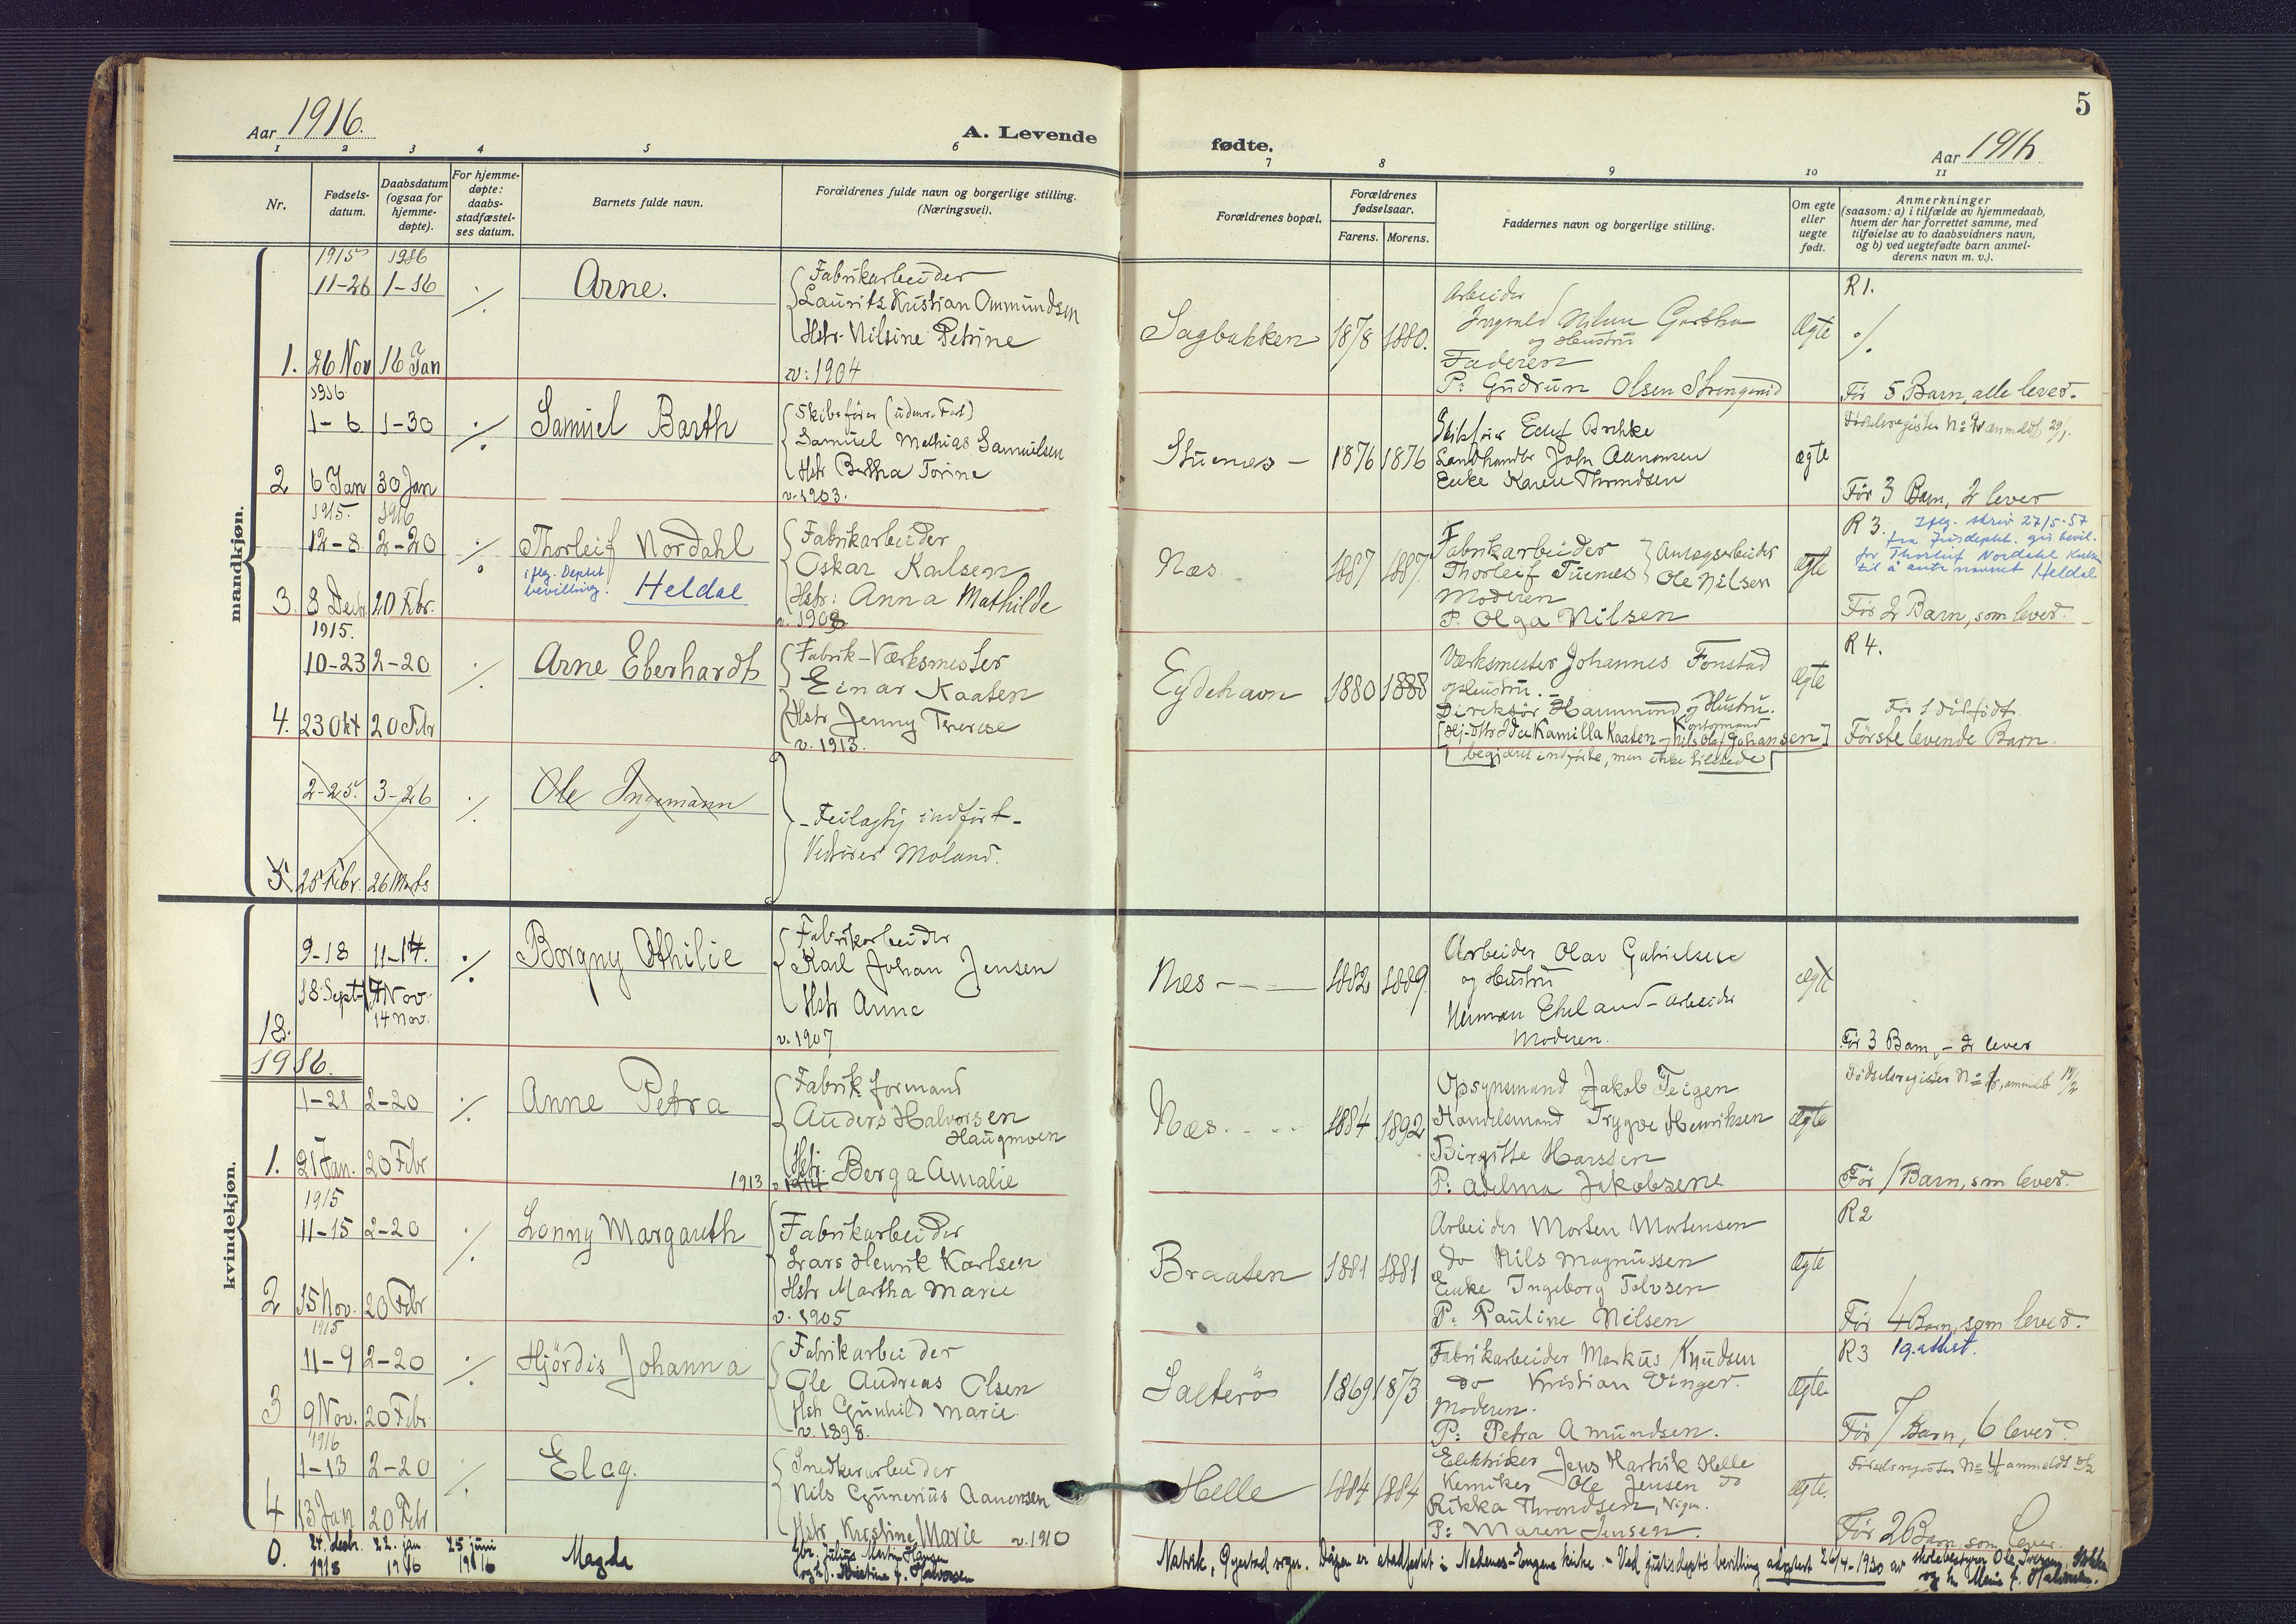 Aar 1916.
A. Levende
fødte.
Aar 1916
5
1 2 3 4 5 6 7 8 9 10 11
Nr.
Fødsels-
datum.
Daabsdatum
(ogsaa for
hjemme-
døpte).
For hjemme-
døpte:
daabs-
stadfæstel-
ses datum.
Barnets fulde navn.
Forældrenes fulde navn og borgerlige stilling.
(Næringsvei).
Forældrenes bopæl.
Forældrenes
fødselsaar.
Farens. Morens.
Faddernes navn og borgerlige stilling.
Om egte
eller
uegte
født.
Anmerkninger
(saasom: a) i tilfælde av hjemmedaab,
hvem der har forrettet samme, med
tilføielse av to daabsvidners navn,
og b) ved uegtefødte barn anmel-
derens navn m. v.).
mandkjøn.
1915 1916
11-26 1-16
1. 26 Nov 16 Jan
Arne.
Fabrikarbeider
Laurits Kristian Ommundsen
Hstr. Nilsine Petrine
v: 1904
Sagbakken 1878 1880.
Arbeider
og Hustru
Faderen
P: Gudrun Olsen
Ægte
R 1.
Før 5 Barn, alle lever.
1916
1-6 1-30
2 6 Jan 30 Jan
Samuel Barth
Skibsfører (udenr. Fart)
Samuel Mathias Samuelsen
Hstr Bertha Torine
v. 1903.
Stuenes - 1876 1876
Landhandler John Aanonsen
Enke Karen Throndsen
ægte
Fødselsregister No 2 anmeldt 29/1.
Før 3 Barn, 2 lever
1915. 1916
12-8. 2-20
3. 8 Decbr. 20 Febr.
Thorleif Nordahl
iflg. Deptet
bevilling. Heldal
Fabrikarbeider
Oskar Karlsen
Hstr: Anna Mathilde
v. 1908
Næs. 1887 1887.
Fabrikarbeider
Thorleif Tuenes
Anlægsarbeider
Ole Nilsen
Moderen
P. Olga Nilsen
ægte
R 3. Iflg. skriv 27/5-57
fra Jusdeptet. gis bevil.
for Thorleif Nordahl
til å anta navnet Heldal
Før 2 Barn, som lever.
1915.
10-23 2-20
4. 23 Okt 20 Febr
Arne Eberhardt
Fabrik-Værksmester
Einar Kaaten
Hstr Jenny Therese
v. 1913.
Eydehavn 1880 1888
Værksmester Johannes Fonstad
og Hustru.
Direktør Hammond og Hustru.
Kamilla Kaaten - Kontormand Nils Olaf Johansen]
[begjæret indførte, men ikke tilstede]
Ægte
R 4.
Før 1 dødfødt
Første levende Barn.
2-25. 3-26
5. 25 Febr. 26 Marts
Ole Ingemann
- Feilagtig indført -
Vedrører Moland.
kvindekjøn.
9-18 11-14.
18. 18 Sept. 7 Nov.
14 Nov.
Borgny Othilie
Fabrikarbeider
Karl Johan Jensen
Hstr Anne
v. 1907
Næs - 1882 1889
Arbeider Olav Gabrielsen
og Hustru
Herman Eheland - Arbeider
Moderen.
ægte
Før 3 Barn, - 2 lever
1916.
1-21 2-20
1. 21 Jan. 20 Febr
Anne Petra
Fabrikformand
Anders Halvorsen
Haugmoen
Hstr. Berga Amalie
1913 v. 1914
Næs. 1884 1892
Opsynsmand Jakob Teigen
Handelsmand Trygve Henriksen
Birgitte Harssen
P: Adelma Jakobsene
Ægte
Før 1 Barn, som lever.
1915
11-15 2-20
2 15 Nov. 20 Febr
Lonny Margareth
Fabrikarbeider
Lars Henrik Karlsen
Hstr Martha Marie
v. 1905
Braaten 1881 1881
Arbeider Morten Mortensen
do Nils Magnussen
Enke Ingeborg Tolvsen
P: Pauline Nilsen
Ægte
R 2
Før 4 Barn, som lever.
1915
11-9 2-20
3 9 Nov. 20 Febr.
Hjördis Johanna
Fabrikarbeider
Ole Andreas Olsen
Hstr Gunhild Marie.
v. 1898.
Salterö 1869 1873
Fabrikarbeider Markus Knudsen
do Kristian Vinger.
Moderen.
P: Petra Amundsen.
Ægte.
R 3 19. attest.
Før 7 Barn, 6 lever.
1916
1-13 2-20
4 13 Jan 20 Febr
Elag.
Snedkerarbeider
Nils Gunerius Aanonsen
Hstr Kristine Marie v. 1910
Helle 1884 1884
Elektriker Jens Hartvik Helle
Kemiker Ole Jensen do
Rikka Throndsen,
P: Maren Jensen.
ægte.
Fødselsregister No 4 anmeldt
Før 2 Barn som lever.
0. 24. desbr. 22. jan 25 juni
1915 1916 1916
Magda
Julius Martin Hansen
Kristine f. Halvorsen
Natvik, Gjerstad sogn. Dåpen er stadfestet i Nedenes-Engene kirke. - Ved justisdepts bevilling adoptert 26/4-1920 av skolebestyrer Ole
og h. Marie f. Halvorsen.